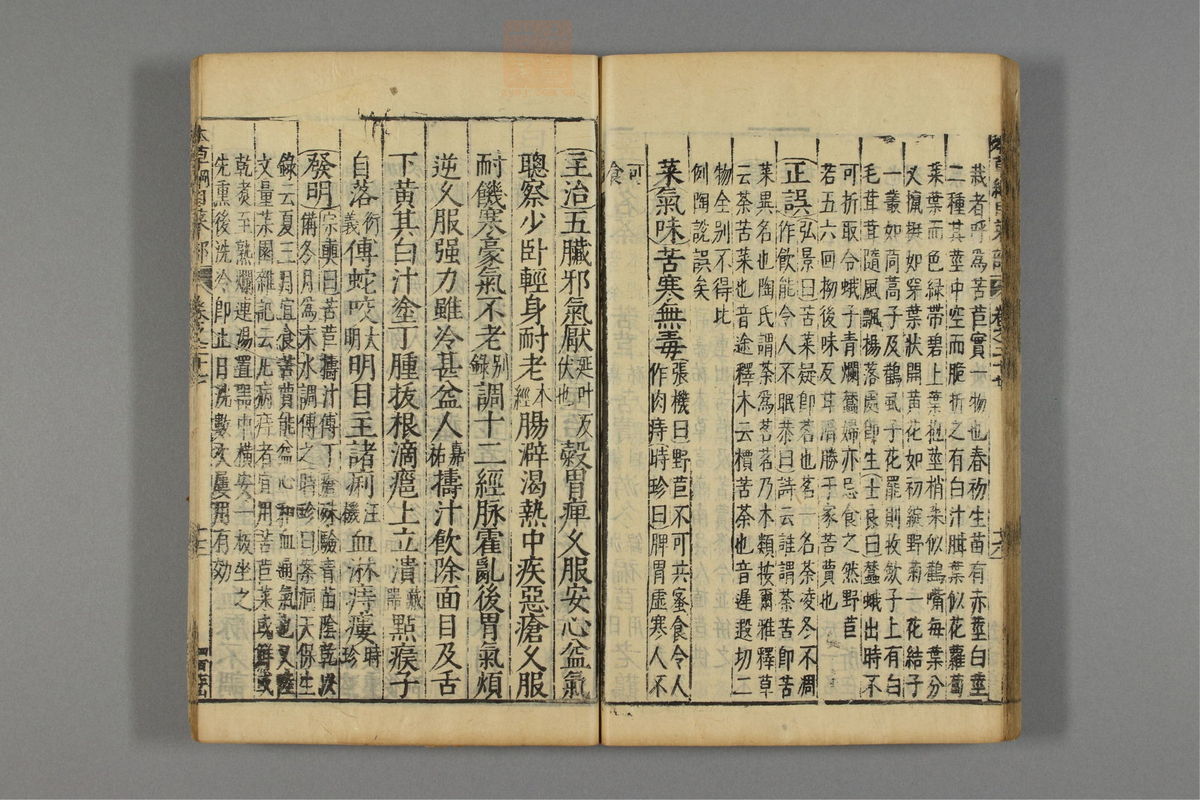 栽者呼為苦苣實一物也春初生苗有赤莖白莖
二種其莖中空而脆折之有白汁胼葉似花蘿蔔
菜葉而色綠帶碧上葉抱莖梢葉似鸛嘴每葉分
叉攛挺如穿葉狀開黃花如初綻野菊一花結子
一叢如茼蒿子及鶴虱子花罷則收斂子上有白
毛茸茸隨風飄揚落處即生士良曰蠶蛾出時不
可折取令蛾子青爛蠶婦亦忌食之然野苣
若五六回拗後味反甘滑勝于家苦蕒也
正誤弘景曰苦菜疑即茗也茗一名荼凌冬不凋
作飲能令人不眠恭曰詩云誰謂荼苦即苦
菜異名也陶氏謂荼為茗茗乃木類按爾雅釋草
云荼苦菜也音途釋木云檟苦荼也音遲遐切二
物全別不得比
例陶說誤矣
菜氣味苦寒無毒張機曰野苣不可共蜜食令人
作肉痔時珍曰脾胃虛寒人不
可
食
主治五臟邪氣厭延叶反
伏也穀胃痺久服安心益氣
聰察少卧輕身耐老本
經腸澼渴熱中疾惡瘡久服
耐饑寒豪氣不老別
錄調十二經脉霍亂後胃氣煩
逆久服强力雖冷甚益人嘉
祐擣汁飲除面目及舌
下黃其白汁塗丁腫拔根滴癰上立潰藏
器點瘊子
自落衍
義傅蛇咬大
明明目主諸痢汪
機血淋痔瘻時
珍
發明宗奭曰苦苣擣汁傅丁瘡殊驗青苗陰乾以
備冬月為末水調傅之時珍曰按洞天保生
錄云夏三月宜食苦蕒能益心和血通氣也又陸
文量菜園雜記云凡病痔者宜用苦苣菜或鮮或
乾煮至熟爛連湯置器中橫安一板坐之
先熏後洗冷即止日洗數次屢用有効